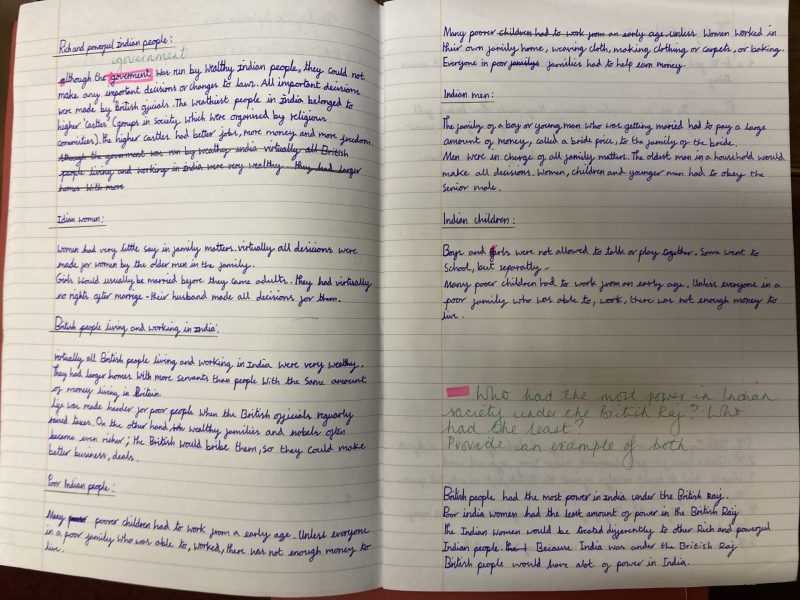 Rich and powerful Indian people:
government
although the goverment was run by wealthy Indian people, they could not
make any important decisions or changes to laws. All important decisions
were made by British officials. The wealthiest people in India belonged to
higher "castles" (groups in society which were organised by religious
comunities). the higher castles had better jobs, more money and more freedom.
though the goverment was run by wealthy india virtually all British
people living and working in India were very wealthy. They had larger
homes with more
Idian women:
women had very little say in family matters. virtually all desicions were
made for women by the older men in the family.
Girls would usually be married before they came adults. They had virtually
no rights after marrige - their husband made all decisions for them.
British people living and working in India:
virtually all British people living and working in India were very wealthy.
They had larger homes with more servants than people with the same amount
of money living in Britain.
Life was made harder for poor people when the British officials reguarly
raised taxes. On the other hand, wealthy families and nobels often
became even richer; the British would bribe them, so they could make
better business, deals.
Poor Indian people:
Many poor poorer children had to work from a early age. Unless everyone
in a poor family who was able to, worked, there was not enough money to
live.
Many poorer children had to work from an early age. unless Women worked in
their own family home, weaving cloth, making clothing or carpets, or baking.
Everyone in poor familys families had to help earn money.
Indian men:
The family of a boy or young man who was getting maried had to pay a large
amount of money, called a bride price, to the family of the bride.
Men were in charge of all family matters. The oldest man in a household would
make all decisions. Women, children and younger men had to obey the
senior male.
Indian children:
Boys and girls were not allowed to talk or play together. Some went to
School, but separatly.
Many poorer children had to work from an early age. Unless everyone in a
poor family who was able to, work, there was not enough money to
live.
Who had the most power in Indian
society under the British Raj? Who
had the least?
Provide an example of both.
British people had the most power in india under the British Raj.
Poor india women had the least amount of power in the British Raj
the Indian Women would be treated differently to other Rich and powerful
Indian people. the I Because India was under the British Raj
British people would have alot of power in India.